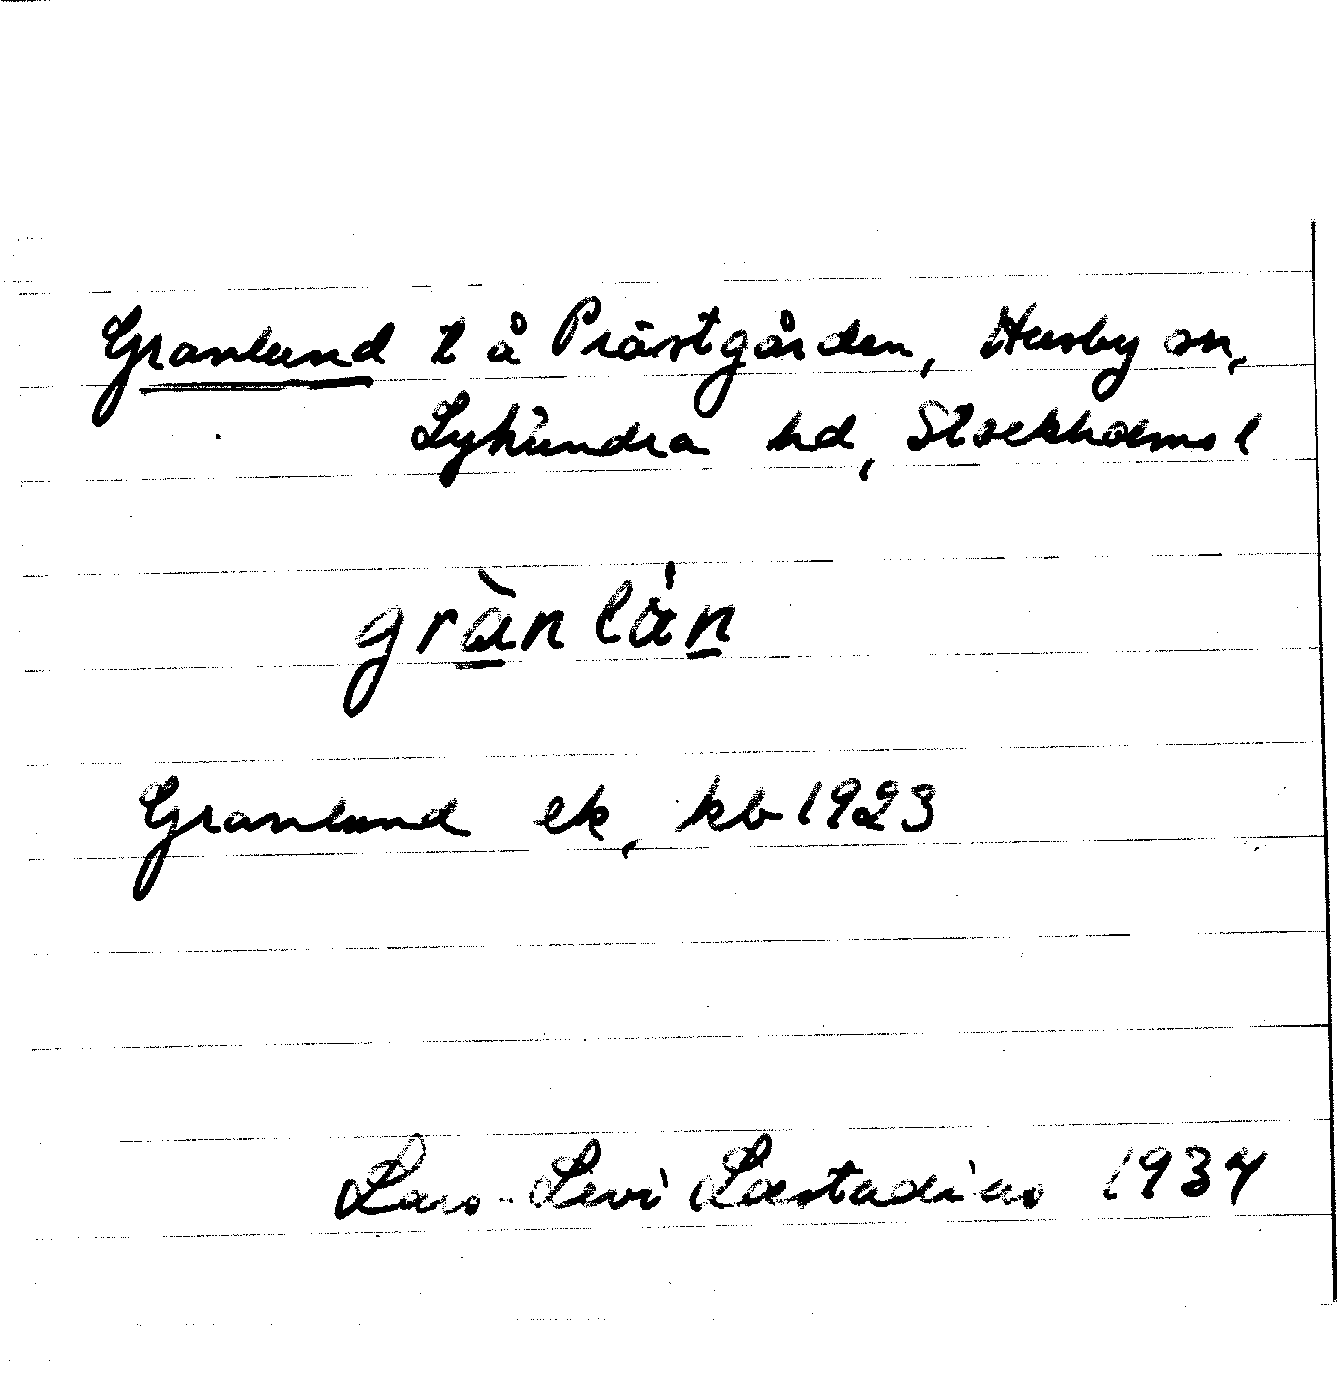 Granlund t å Prästgården, Husby sn,
Lyhundra hd, Stockholms l
grànlán
Granlund ek, kb 1923
Lars-Levi Læstadius 1934